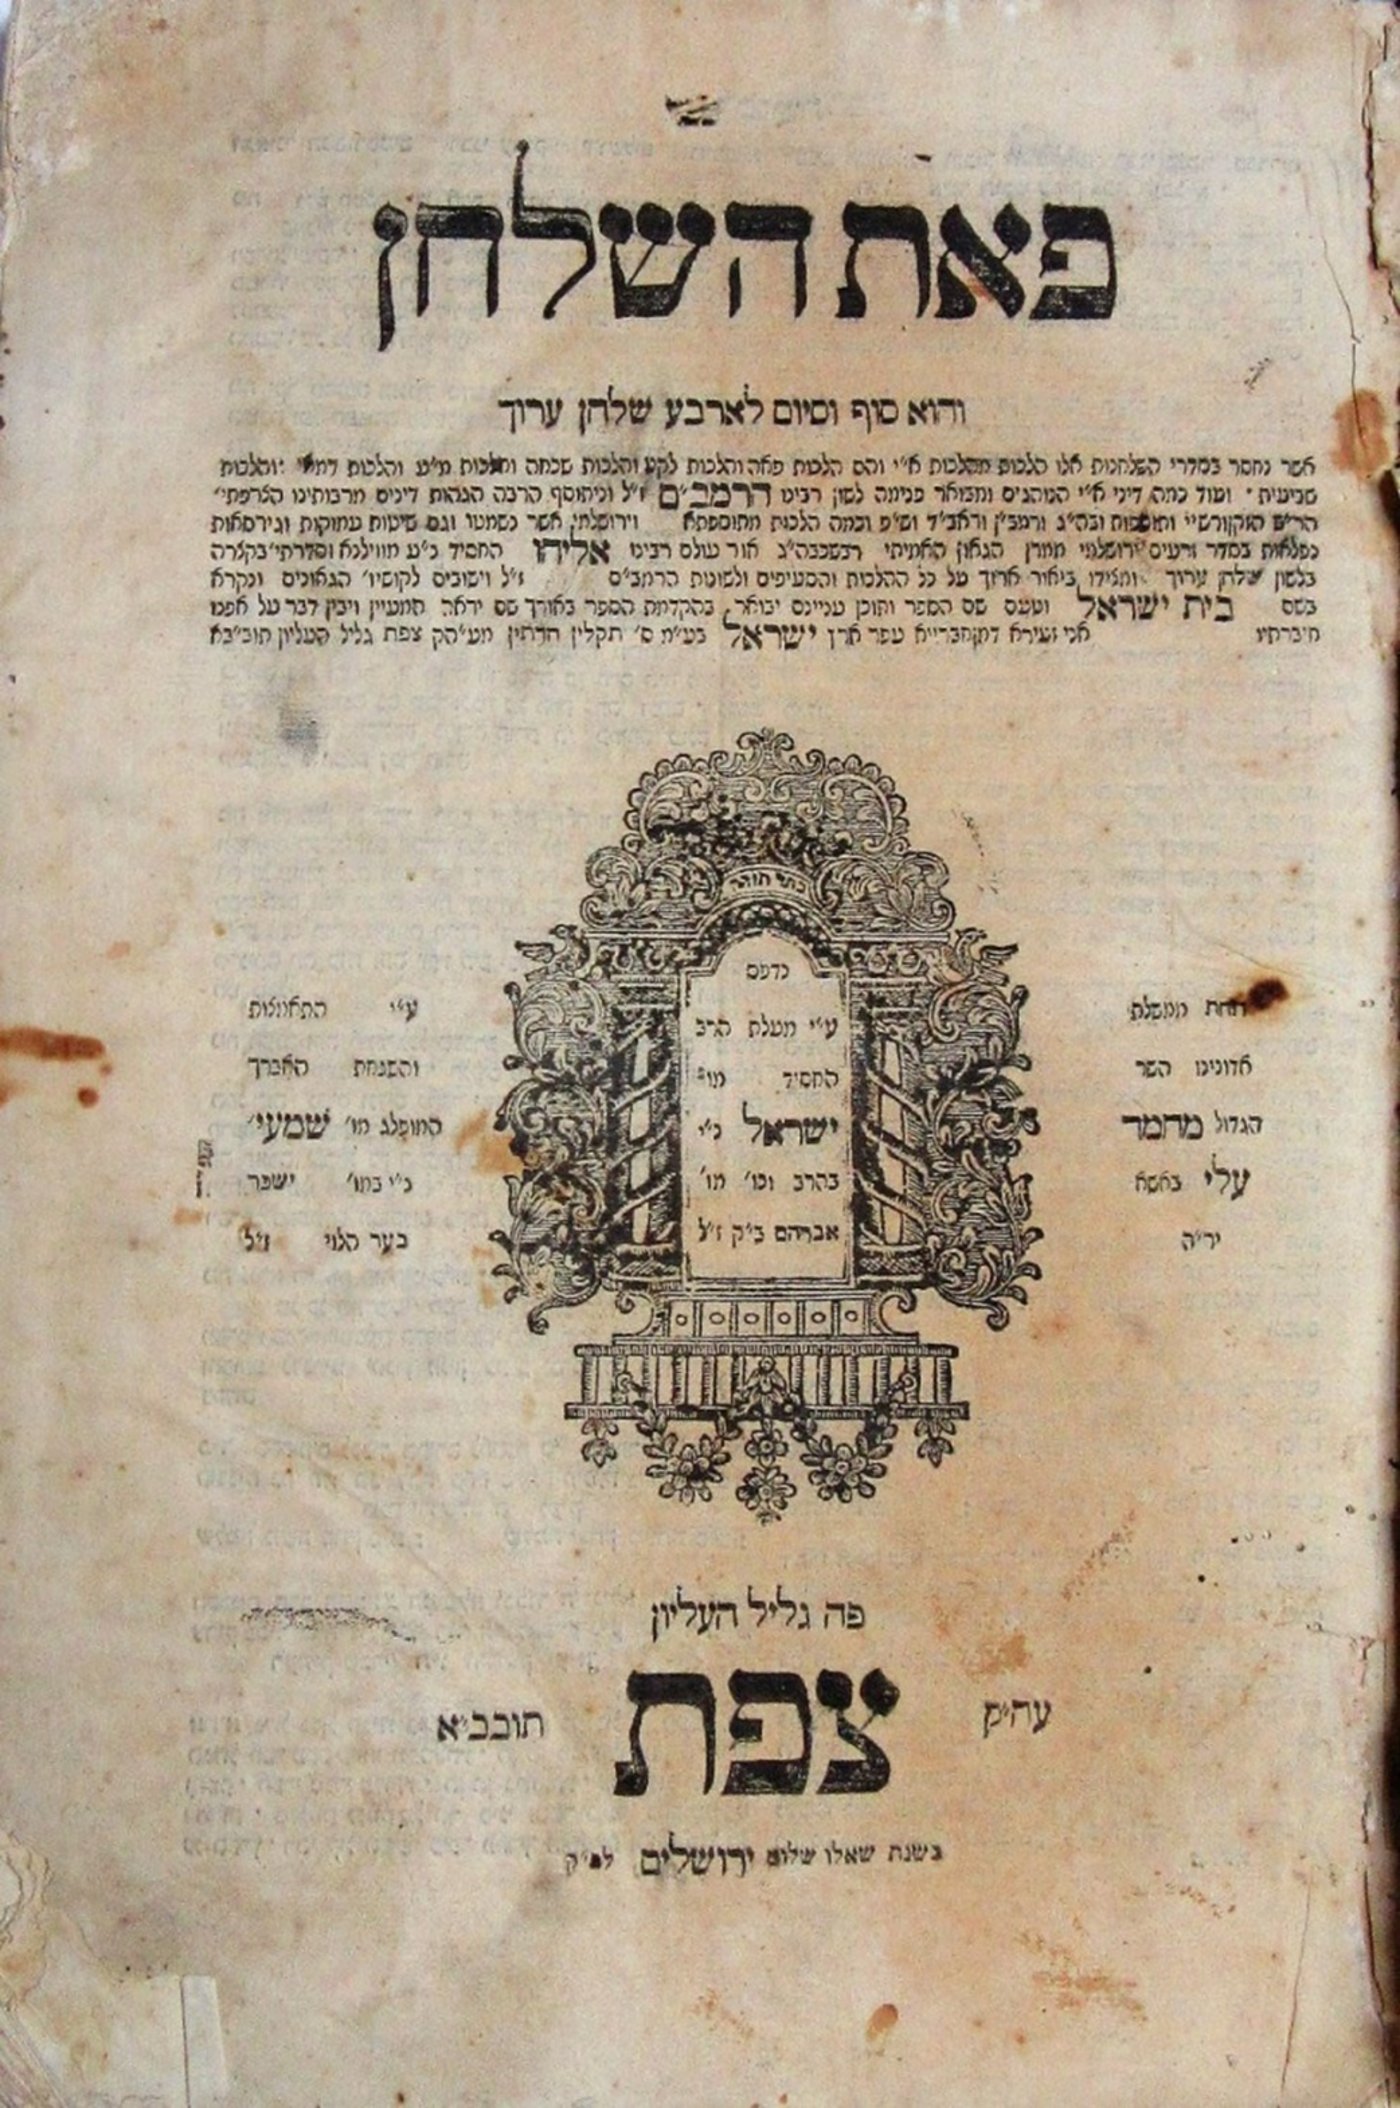 פאת השלחן
והוא סוף וסיום לארבע שלחן ערוך
אשר נחסר בסדרי השלחנות אלו הלכות מהלכות א״י והם הלכות פאה והלכות לקט והלכות שכחה והלכות מ״ע והלכות דמאי והלכות
שביעית ועוד כמה דיני א״י הנוהגים ומבואר פנימה לשון רבינו הרמב״ם ז״ל וניתוסף הרבה הגהות דינים מרבותינו הצרפתי׳
הר״ש ותוספות ובה״ג ורמב״ן וראב״ד וש״פ וכמה הלכות מתוספתא וירושלמי אשר נשמטו וגם שיטות עמוקות וגירסאות
נפלאות בסדר זרעים וירושלמי ממרן הגאון האמיתי רבשכבה״ג אור עולם רבינו אליהו החסיד נ״ע מווילנא וסדרתי׳ בקצרה
בלשון שלחן ערוך ומצידו ביאור ארוך על כל ההלכות והסעיפים ולשונות הרמב״ם ז״ל וישובים לקושיו׳ הגאונים ונקרא
בשם בית ישראל וטעם שם הספר ותוכן עניינם יבואר בהקדמת הספר באורך שם יראה המעיין ויבין דבר על אפנו
חיברתיו אני זעירא דמן חברייא עפר ארץ ישראל בע״מ ס׳ תקלין חדתין מעה״ק צפת גליל העליון תובב״א
כתר תורה
תחת ממשלת
אדונינו השר
הגדול מחמד
עלי באשא
יר״ה
נדפס
ע״י מעלת הרב
החסיד מו״
ישראל נ״י
בהרב וכו׳ מו׳
אברהם ב״ק ז״ל
ע״י התאמצות
והשגחת האברך
המופלג מו׳ שמעי׳
נ״י במו׳ ישכר
בער הלוי ז״ל
פה גליל העליון
עה״ק צפת תובב״א
בשנת שאלו שלום ירושלים לפ״ק